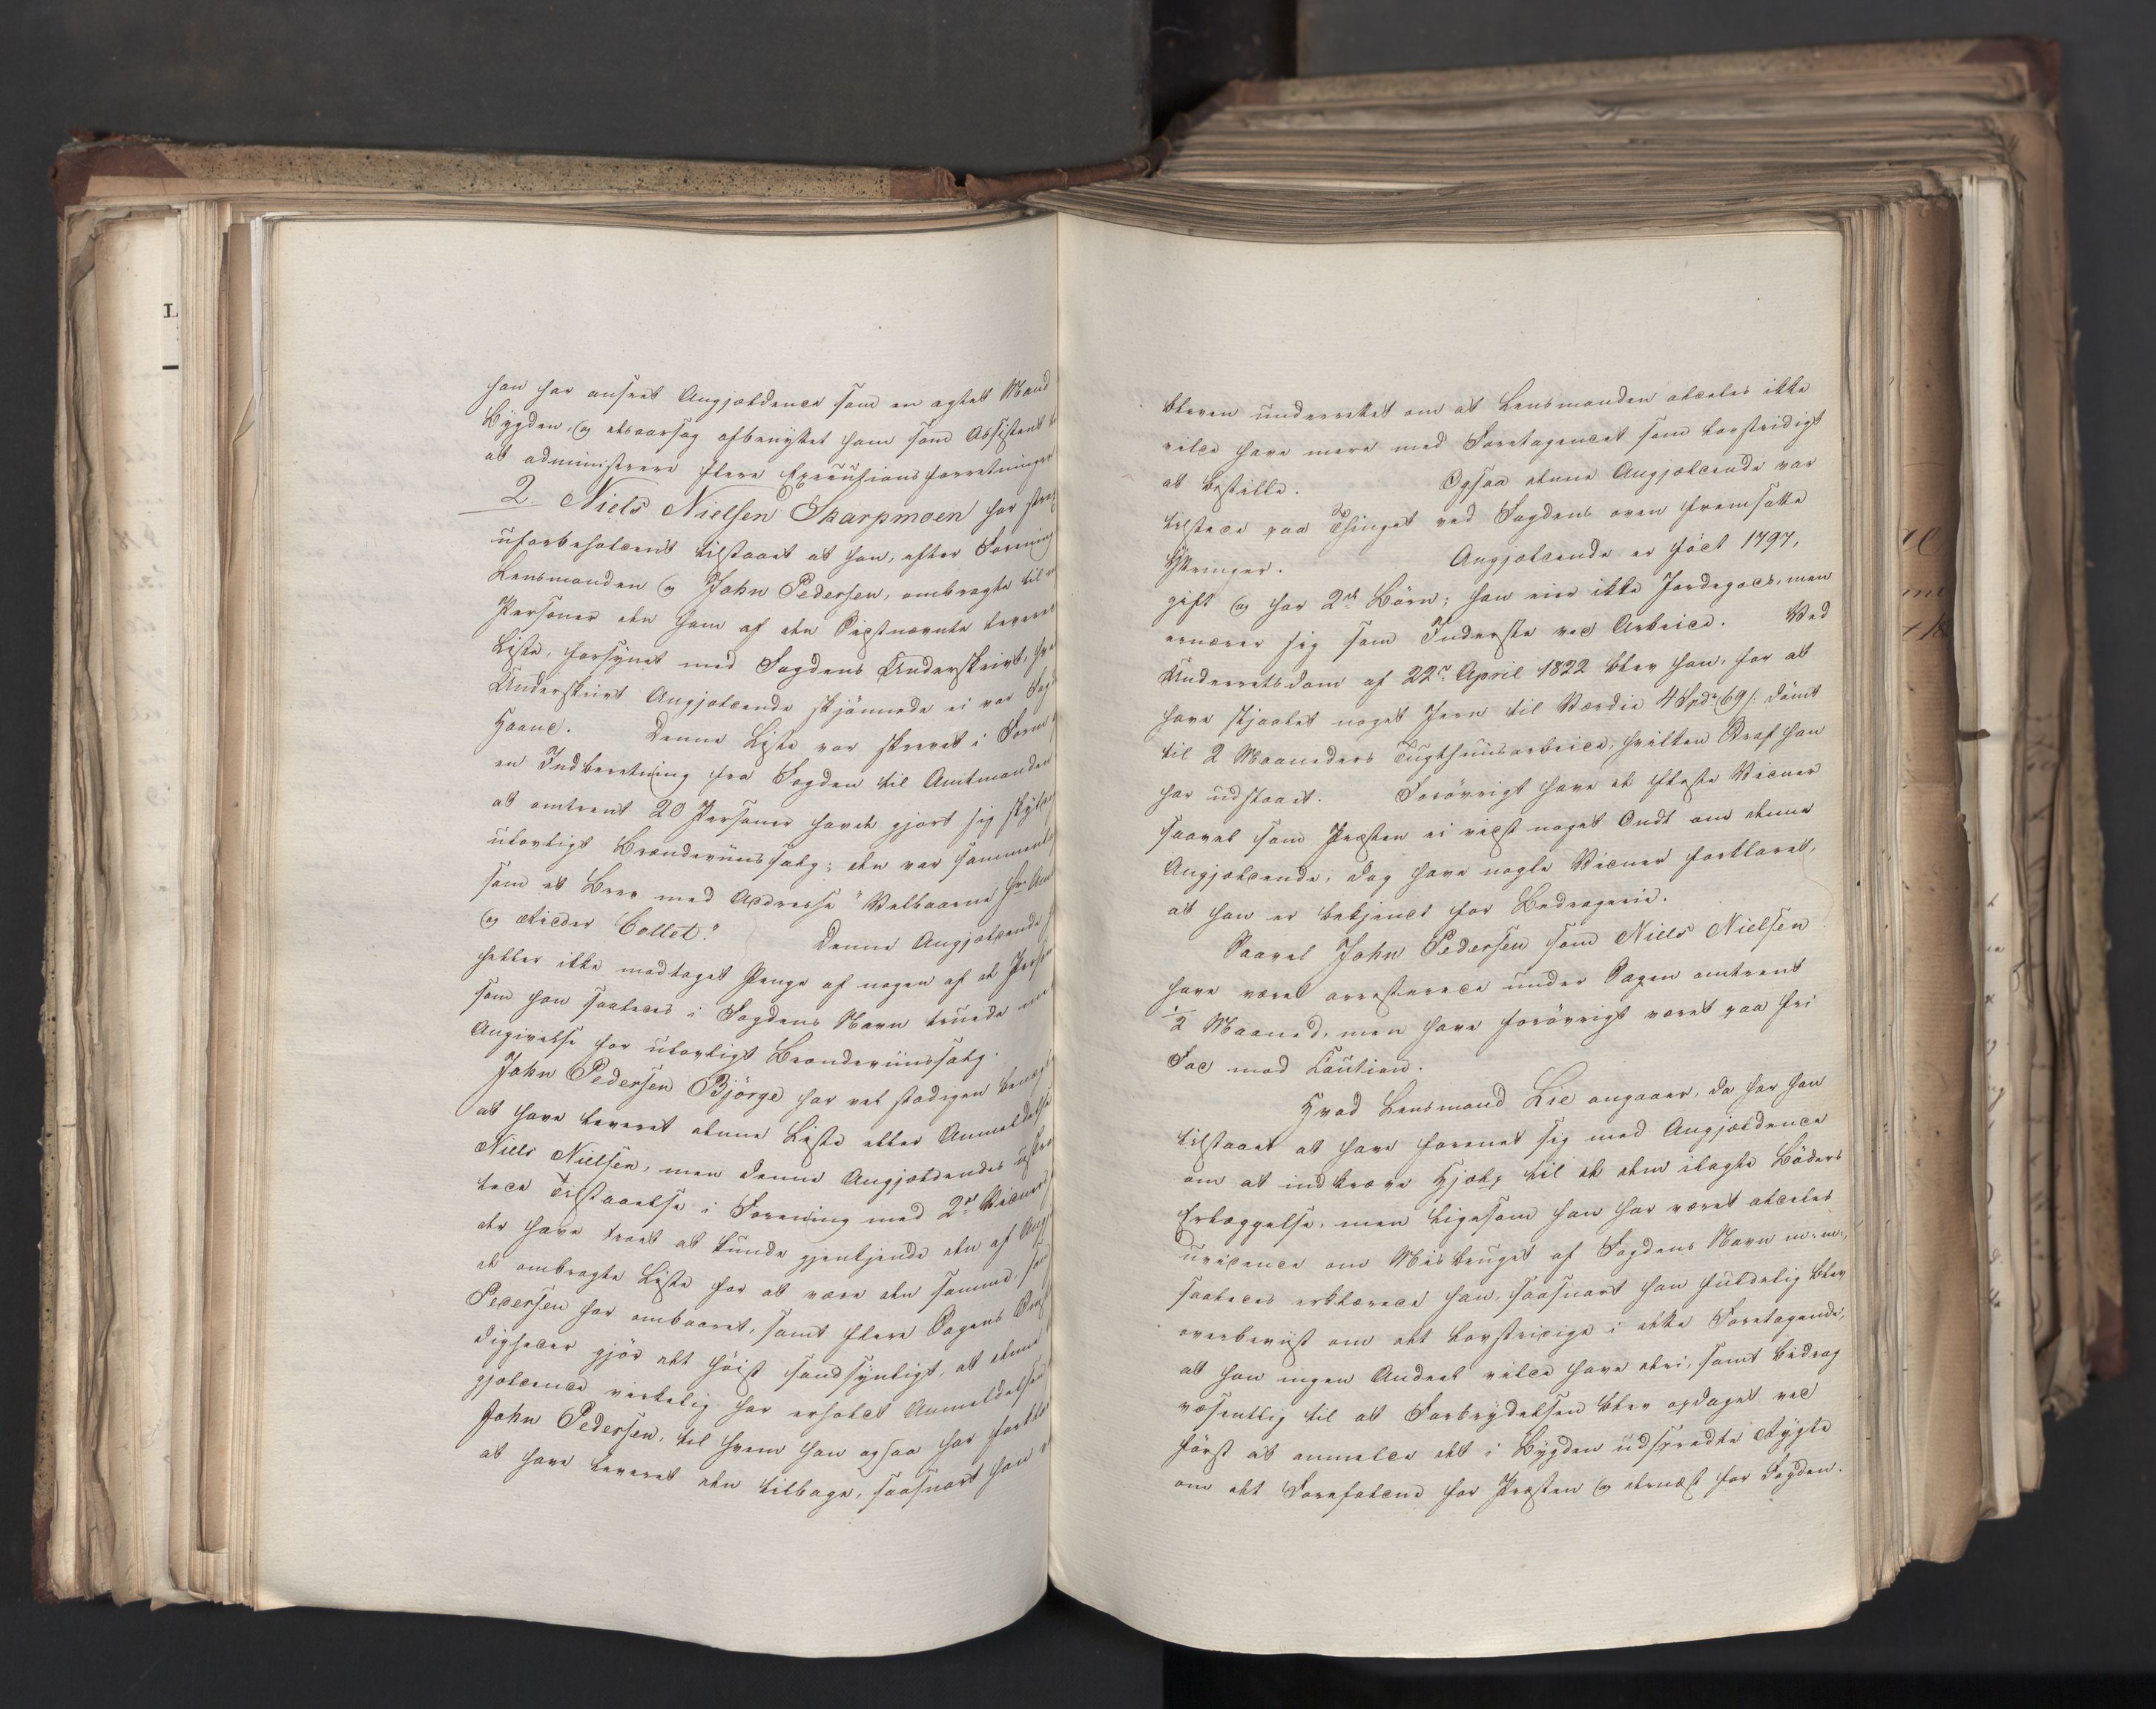 han har anseet Angjældende som en agtet Mand
Bygden, og desaarsag afbenyttet ham som Assistent
at administrere flere Executionsforretninger
2. Niels Nielsen Skarpmoen har
uforbeholdent tilstaaet at han, efter Forening
Lensmanden og John Pedersen, ombragte til
Personer den ham af den Sidstnævnte leverede
Liste, forsynet med Fogdens Underskrivt,
Underskrivt Angjældende skjønnede ei var
Haand. Denne Liste var skrevet i Form
en Indberetning fra Fogden til Amtmanden
at omtrent 20 Personer havde gjort sig
ulovligt Brændeviinssalg; den var
som et Brev med Addresse "Velbaarne Hr
og Ridder Collet." Denne Angjældende
heller ikke modtaget Penge af nogen af de
som han saaledes i Fogdens Navn truede
Angivelse for ulovligt Brændeviinssalg.
John Pedersen Bjørge har vel stadigen
at have leveret denne Liste eller Anmeldelse
Niels Nielsen, men denne Angjældendes
lede Tilstaaelse i Forening med 2de Vidner
der have troet at kunde gjenkjende den af
de ombragte Liste for at være den samme,
Pedersen har ombaaret, samt flere Sagens
digheder gjør det høist sandsynligt, at denne
gjældende virkelig har erholdt Anmeldelsen
John Pedersen, til hvem han ogsaa har
at have leveret den tilbage, saasnart han
bleven underrettet om at Lensmanden aldeles ikke
vilde have mere med Foretagendet som lovstridigt
at bestille. Ogsaa denne Angjældende var
tilstede paa Thinget ved Fogdens oven fremsatte
Yttringer. Angjældende er født 1797,
gift og har 2de Børn; han eier ikke Jordegods, men
ernærer sig som Inderste ved Arbeide. Ved
Underretsdom af 22de April 1822 blev han, for at
have stjaalet noget Jern til Værdie 4 Spd. 69 s. dømt
til 2 Maaneders Tugthuusarbeide, hvilken Straf han
har udstaaet. Forøvrigt have de fleste Vidner
saavel som Præsten ei vidst noget Ondt om denne
Angjældende, dog have nogle Vidner forklaret,
at han er bekjendt for Bedragerie.
Saavel John Pedersen som Niels Nielsen
have været arresterede under Sagen omtrent
1/2 Maaned, men have forøvrigt været paa fri
Fod mod Caution.
Hvad Lensmand Lie angaaer, da har han
tilstaaet at have forenet sig med Angjældende
om at indkræve Hjælp til de dem ilagte Bøders
Erlæggelse, men ligesom han har været aldeles
uvidende om Misbruget af Fogdens Navn m: m:,
saaledes erklærede han, saasnart han fuldelig blev
overbeviist om det lovstridige i dette Foretagende,
at han ingen Andeel vilde have deri, samt bidrog
væsentlig til at Forbrydelsen blev opdaget ved
først at anmelde det i Bygden udspredte Rygte
om det Forefaldene for Præsten og dernæst for Fogden.